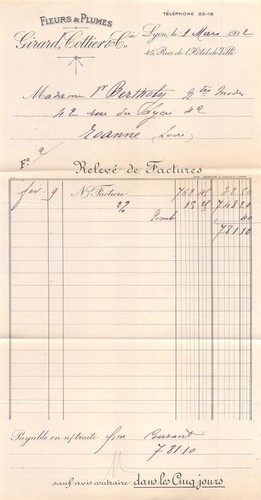 FLEURS & PLUMES
TÉLÉPHONE 28-18
Girard, Cottier & Cie
Lyon, le 1 Mars 1912
46, Rue de l'Hôtel de Ville
Madame Vve Berthoty Modes
42 rue du Lycée 42
Roanne Loire
Fo
Relevé de Factures
fév. 9 N/ Facture 762 45 22 50
2% 15 25 748 20
Timb 40
781 10
Payable en n/traite fin Courant
781.10
sauf avis contraire dans les Cinq jours